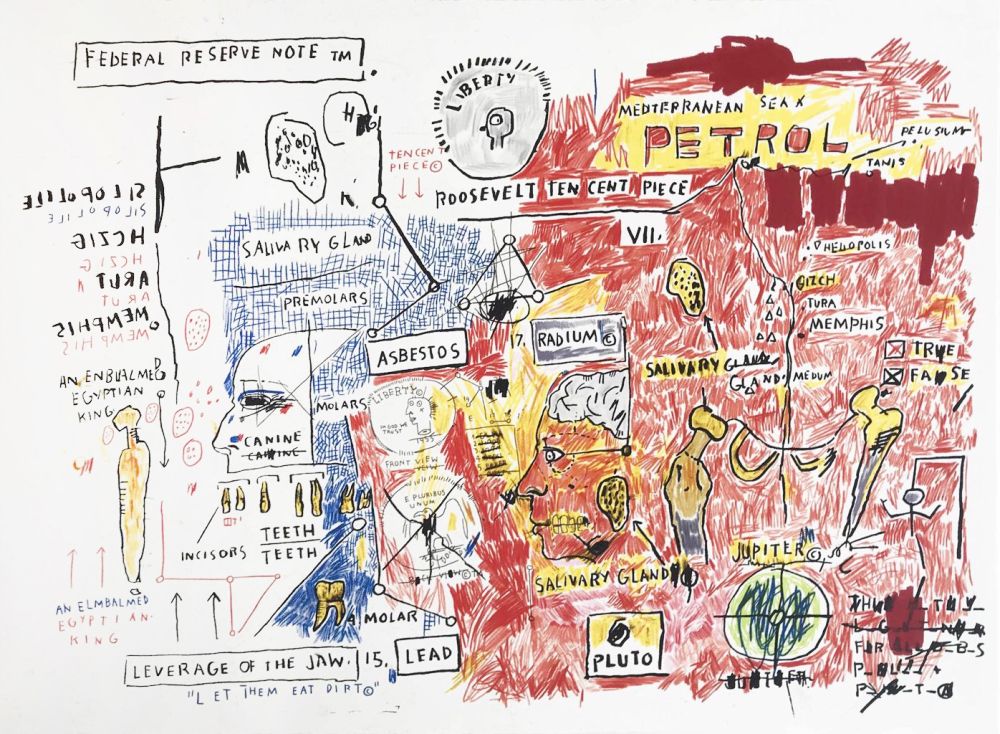 FEDERAL RESERVE NOTE TM.
LIBERTY
MEDITERRANEAN SEA X
PETROL
PELUSIUM
TANIS
TEN CENT
PIECE©
ROOSEVELT TEN CENT PIECE
M
SILOPOLILE
SILOPOLILE
HCZIG
HCZIG
ARUT
ARUT
MEMPHIS
MEMPHIS
SALIVARY GLAND
PREMOLARS
VII.
HELIOPOLIS
GIZCH
TURA
MEMPHIS
MEDUM
TRUE
FALSE
ASBESTOS
17.
RADIUM©
SALIVARY GLAND
GLAND
AN ENBUALMED
EGYPTIAN
KING
MOLARS
LIBERTY©
IN GOD WE
TRUST
1955
FRONT VIEW
VIEW
CANINE
CANINE
E PLURIBUS
UNUM
INCISORS
TEETH
TEETH
JUPITER©
SALIVARY GLAND
AN ELMBALMED
EGYPTIAN-
KING
MOLAR
LEVERAGE OF THE JAW.
15.
LEAD
PLUTO
"LET THEM EAT DIRT©"